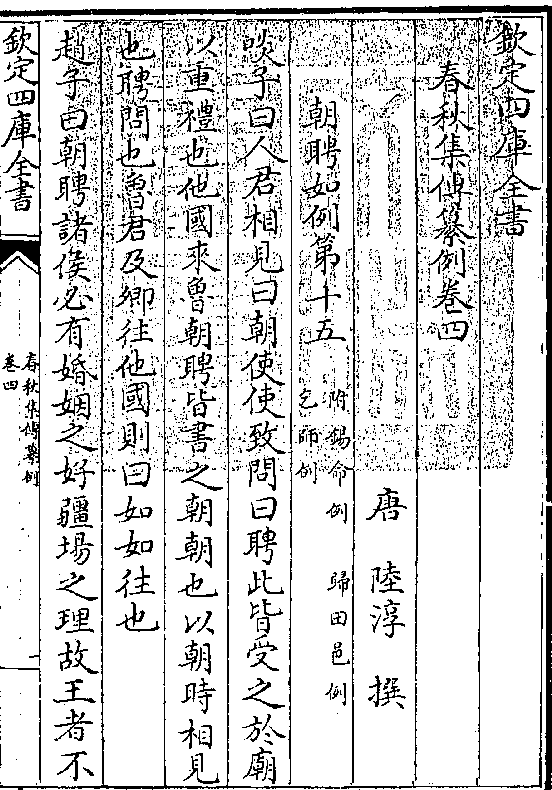 欽定四庫全書
春秋集傳纂例卷四
唐 陸淳 撰
朝聘如例第十五 附錫命例 歸田邑例
乞師例
啖子曰人君相見曰朝使使致問曰聘此皆受之於廟
以重禮也他國來魯朝聘皆書之朝朝也以朝時相見
也聘問也魯君及卿往他國則曰如如往也
趙子曰朝聘諸侯必有婚姻之好疆埸之理故王者不
欽定四庫全書
春秋集傳纂例
卷四
一